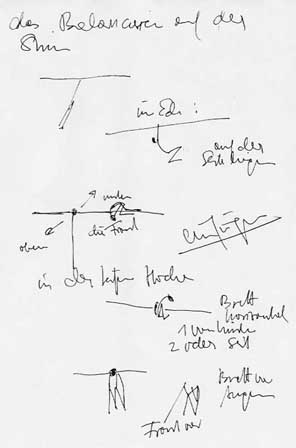 das Balancieren auf der
Stirn
in Ecke :
auf der
Seite liegen
unten
oben
die Front
einfügen
in der Hocke
Brett
horizontal
1 von hinten
2 oder Seit
Brett vor
Augen
Front vor